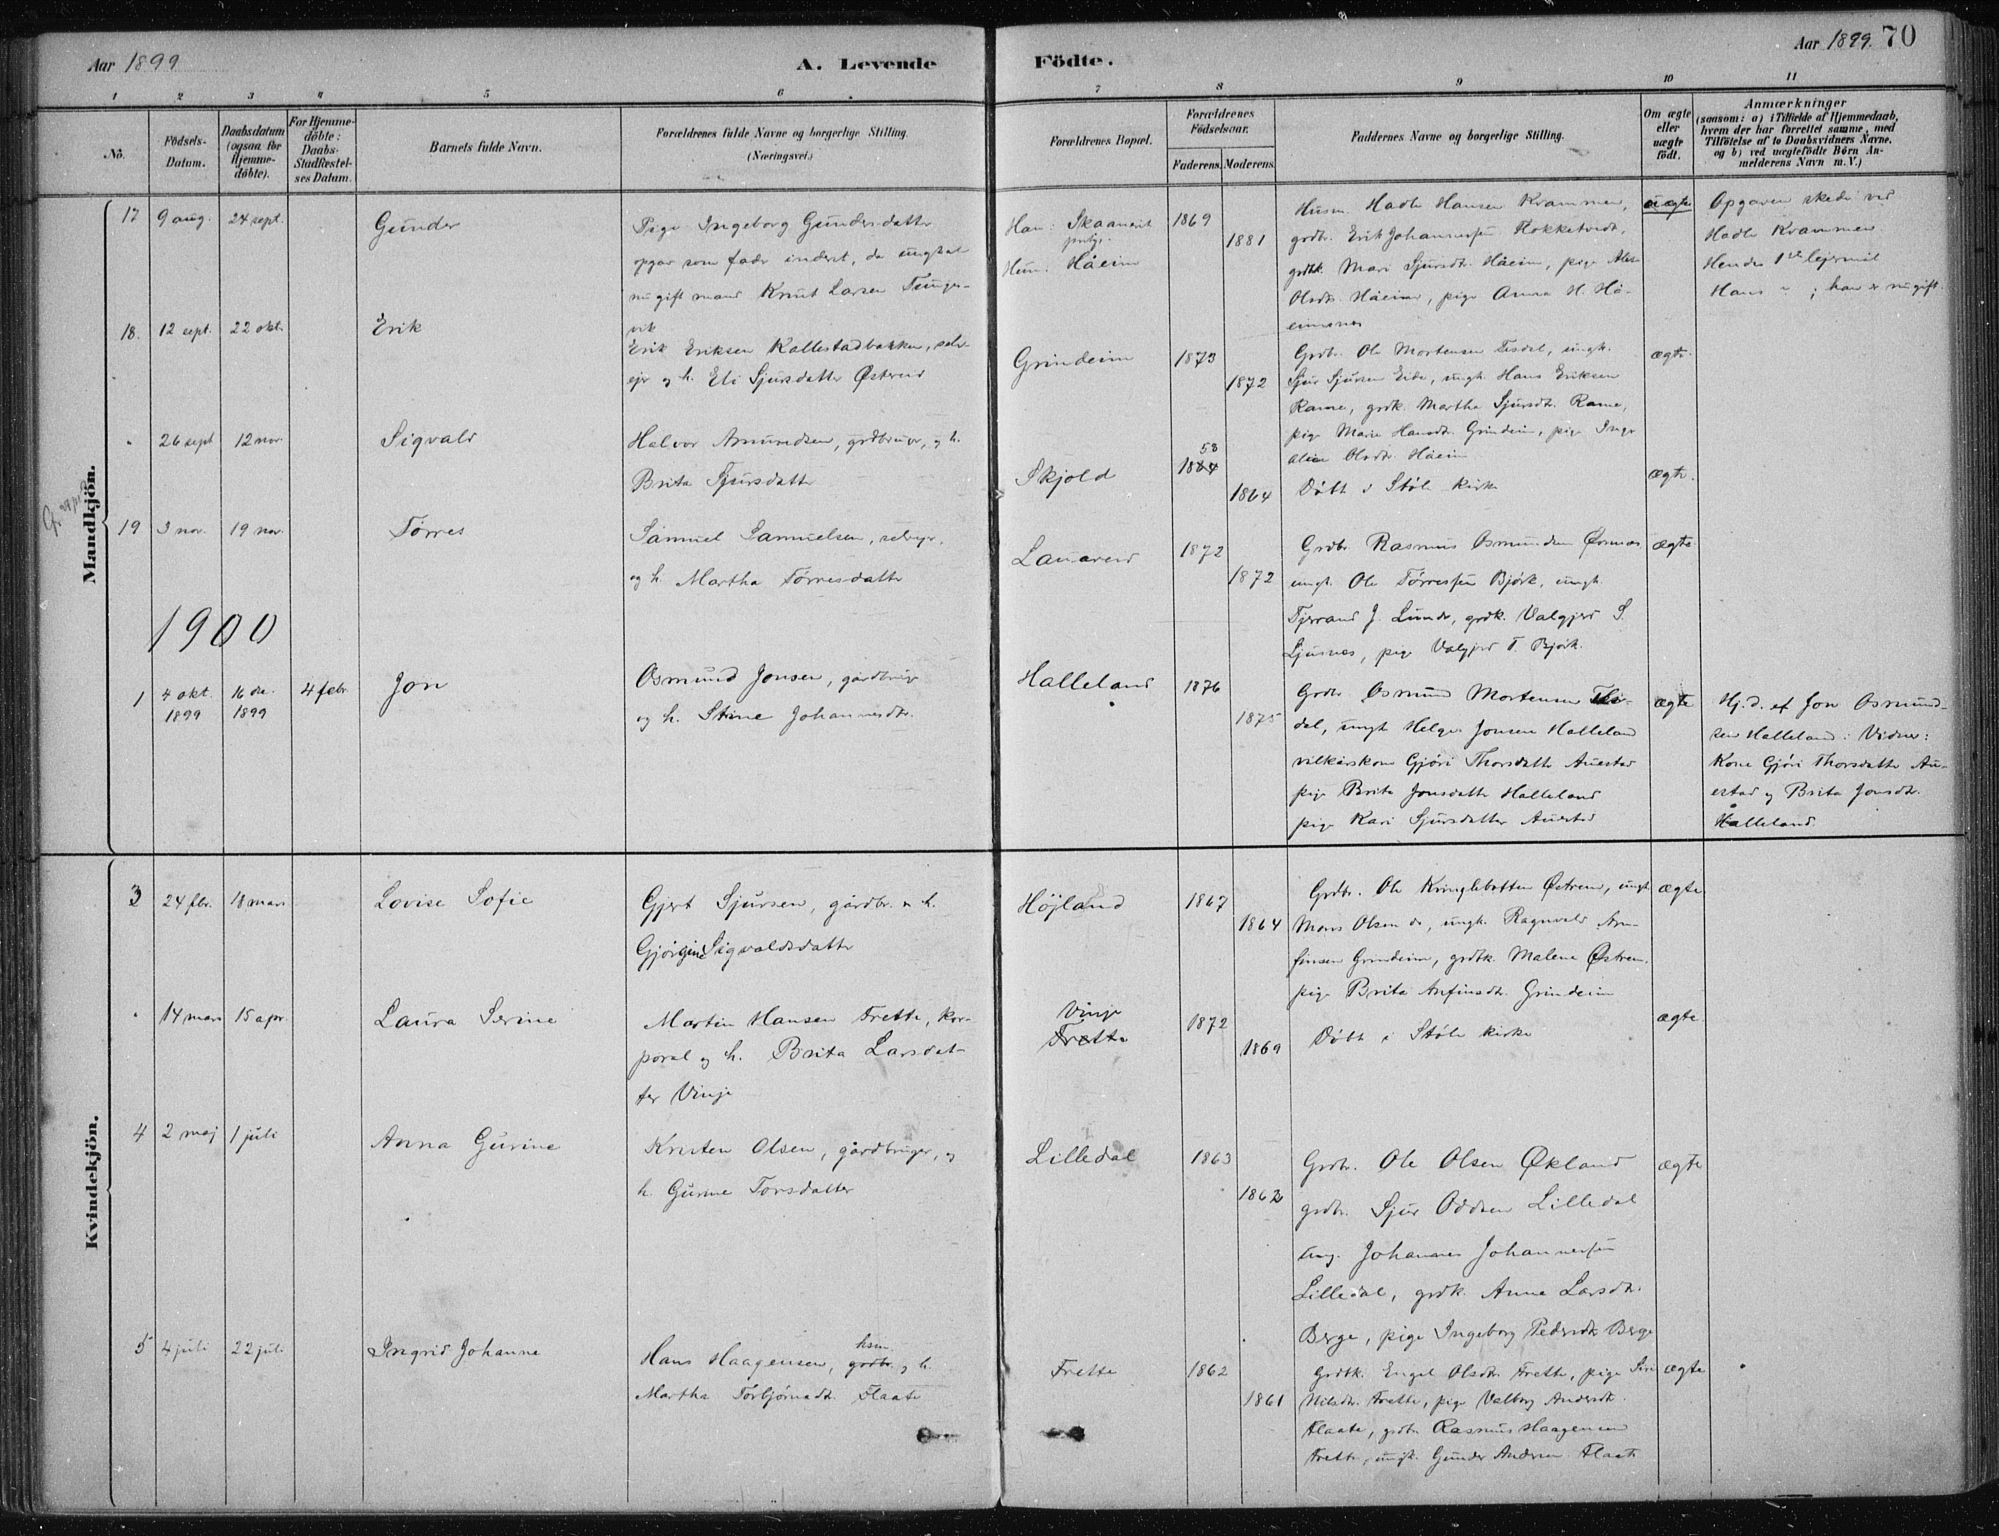 Aar 1899
A. Levende Födte.
Aar 1899. 70
1 2 3 4 5 6 7 8 9 10 11
No.
Födsels-Datum.
Daabsdatum (ogsaa for Hjemme-döbte).
For Hjemme-döbte: Daabs-Stadfæstel-ses Datum.
Barnets fulde Navn.
Forældrenes fulde Navne og borgerlige Stilling. (Næringsvei.)
Forældrenes Bopæl.
Forældrenes Födselsaar.
Faderens. Moderens.
Faddernes Navne og borgerlige Stilling.
Om ægte eller uægte födt.
Anmærkninger
(saasom: a) i Tilfælde af Hjemmedaab, hvem der har forrettet samme, med Tilföielse af to Daabsvidners Navne, og b) ved uægtefödte Börn An-melderens Navn m. V.)
Mandkjön.
17 9 aug. 24 sept. Gunder
Pige Ingeborg Gundersdatter
opgav som fader inderst, da ungkal
nu gift mand Knut Larsen Tunges-
vik
Han: Skaanevik
Hun: Håeim
1869
1881
Husm. Hadle Hansen Krammer,
grdbr. Erik Johannessen Flokketvedt,
grdbk. Mari Sjursdtr. Håeim, pige
Olsdtr. Håeim, pige Anna H. Hå-
eimsnes
uægte
Opgaven skede ved
Hadle Krammer
Hendes 1ste lejermål
Hans " ; han er nu gift.
18. 12 sept. 22 okt. Erik
Erik Eriksen Kallestadbakken, selv-
ejer og h. Eli Sjursdatter Østrem
Grindeim
1873
1872
Grdbr. Ole Mortensen Tesdal, ungk.
Sjur Sjursen Eide, ungk. Hans Eriksen
Rame, grdk. Martha Sjursdtr. Rame,
pige Marie Hansdtr. Grindeim, pige Inge
Olsdtr. Håeim
ægte
" 26 sept 12 nov. Sigvald
Halvor Amundsen, grdbruger, og h.
Brita Sjursdatter
Skjold
58
1864
1864
Døbt i Støle kirke
ægte.
19 3 nov. 19 nov. Tørres
Samuel Samuelsen, selvejer,
og h. Martha Tørresdatter
Lauareid
1872
1872
Grdbr Rasmus Osmundsen Ørnnes
ungk. Ole Tørressen Bjørk, ungk.
Tjerrand J. Lunde, grdk. Valgjerd S.
Ljusnes, pige Valgjerd T. Bjørk.
ægte
1900
1 4 okt. 1899 16 de. 1899 4 febr. Jon
Osmund Jonsen, gårdbruger
og h. Stine Johannesdtr.
Halleland
1876
1875
Grdbr Osmund Mortensen Tes-
dal, ungk Helge Jonsen Halleland
vilkårskone Gjöri Thorsdatter Auestad
pige Brita Jonsdatter Halleland
pige Kari Sjursdatter Auestad
ægte
Hj.d. af Jon Osmund-
sen Halleland: Vidner:
Kone Gjöri Thorsdatter Au-
estad og Brita Jonsdtr.
Halleland.
Kvindekjön.
3 24 fbr. 18 mars Lovise Sofie
Gjert Sjursen, gårdbr. og h.
Gjørgine Sigvaldsdatter
Højland
1867
1864
Grdbr. Ole Kringlebotten Østrem, ungk
Mons Olsen ds, ungk. Ragnvald Arn-
finsen Grindeim, grdbk. Malene Østrem.
pige Brita Anfinsdtr. Grindeim
ægte
" 14 mars 15 apr. Laura Serine
Martin Hansen Frette, kor-
poral og h. Brita Larsdat-
ter Vinje
Vinje
Frette
1872
1869
Døbt i Støle kirke
ægte
4 2 maj 1 juli Anna Gurine
Knuten Olsen, gårdbruger, og
h. Gurine Torsdatter
Lilledal
1863
1862
Grdbr. Ole Olsen Økland
grdbr. Sjur Oddsen Lilledal
ung. Johannes Johannessen
Lilledal, grdk. Anna Larsdtr.
Berge, pige Ingeborg Pedersdtr. Berge
ægte
5 4 juli 22 juli Ingrid Johanne
Hans Haagensen, husm. grdbr. og h.
Martha Torbjørnsdtr. Flaate
Frette
1862
1861
Grdbk. Engel Olsdtr. Frette, pige Siri
Nilsdtr. Frette, pige Valborg Andersdtr.
Flaate, grdbr. Rasmus Haagensen
Frette, ungk. Gunder Andersen Flaate
ægte